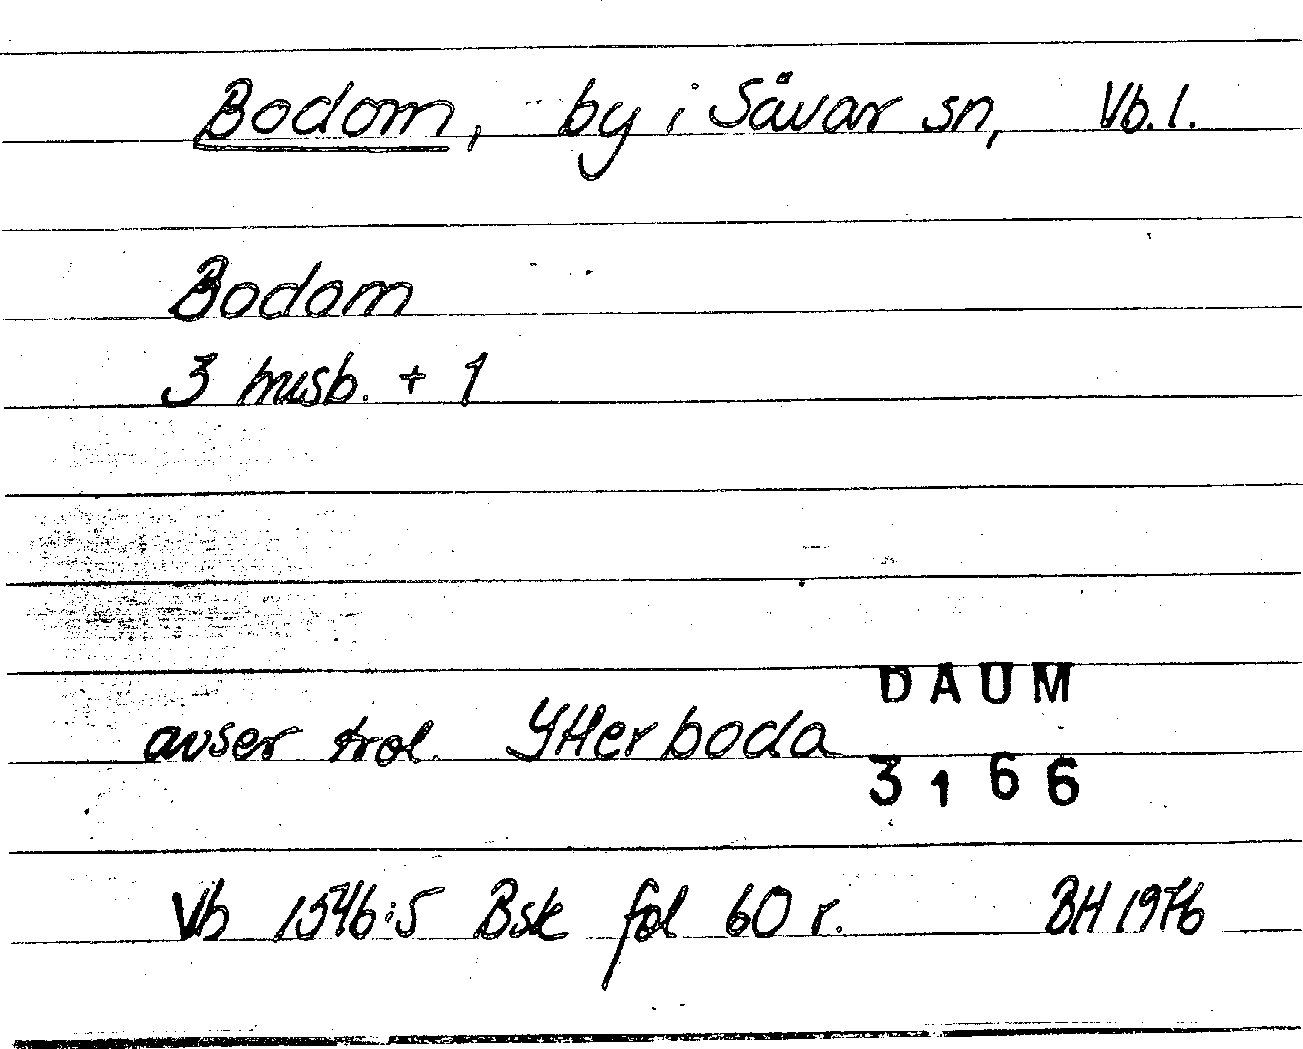 Bodom, by i Sävar sn, Vb. l.
Bodom
3 husb. + 1
DAUM
avser trol. Ytterboda
3166
Vb 1546:5 Bsk fol 60 r. BH 1976